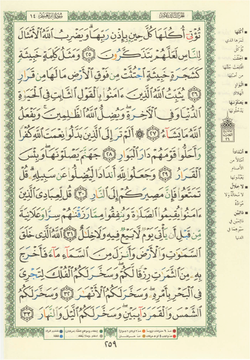 تُؤْتِىٓ أُكُلَهَا كُلَّ حِينٍۭ بِإِذْنِ رَبِّهَا ۗ وَيَضْرِبُ ٱللَّهُ ٱلْأَمْثَالَ
لِلنَّاسِ لَعَلَّهُمْ يَتَذَكَّرُونَ ٢٥ وَمَثَلُ كَلِمَةٍ خَبِيثَةٍ
كَشَجَرَةٍ خَبِيثَةٍ ٱجْتُثَّتْ مِن فَوْقِ ٱلْأَرْضِ مَا لَهَا مِن قَرَارٍ
٢٦ يُثَبِّتُ ٱللَّهُ ٱلَّذِينَ ءَامَنُوا۟ بِٱلْقَوْلِ ٱلثَّابِتِ فِى ٱلْحَيَوٰةِ
ٱلدُّنْيَا وَفِى ٱلْءَاخِرَةِ ۖ وَيُضِلُّ ٱللَّهُ ٱلظَّـٰلِمِينَ ۚ وَيَفْعَلُ
ٱللَّهُ مَا يَشَآءُ ٢٧ أَلَمْ تَرَ إِلَى ٱلَّذِينَ بَدَّلُوا۟ نِعْمَتَ ٱللَّهِ كُفْرًا
وَأَحَلُّوا۟ قَوْمَهُمْ دَارَ ٱلْبَوَارِ ٢٨ جَهَنَّمَ يَصْلَوْنَهَا ۖ وَبِئْسَ
ٱلْقَرَارُ ٢٩ وَجَعَلُوا۟ لِلَّهِ أَندَادًا لِّيُضِلُّوا۟ عَن سَبِيلِهِۦ ۗ قُلْ
تَمَتَّعُوا۟ فَإِنَّ مَصِيرَكُمْ إِلَى ٱلنَّارِ ٣٠ قُل لِّعِبَادِىَ ٱلَّذِينَ
ءَامَنُوا۟ يُقِيمُوا۟ ٱلصَّلَوٰةَ وَيُنفِقُوا۟ مِمَّا رَزَقْنَـٰهُمْ سِرًّا وَعَلَانِيَةً
مِّن قَبْلِ أَن يَأْتِىَ يَوْمٌ لَّا بَيْعٌ فِيهِ وَلَا خِلَـٰلٌ ٣١ ٱللَّهُ ٱلَّذِى خَلَقَ
ٱلسَّمَـٰوَٰتِ وَٱلْأَرْضَ وَأَنزَلَ مِنَ ٱلسَّمَآءِ مَآءً فَأَخْرَجَ
بِهِۦ مِنَ ٱلثَّمَرَٰتِ رِزْقًا لَّكُمْ ۖ وَسَخَّرَ لَكُمُ ٱلْفُلْكَ لِتَجْرِىَ
فِى ٱلْبَحْرِ بِأَمْرِهِۦ ۖ وَسَخَّرَ لَكُمُ ٱلْأَنْهَـٰرَ ٣٢ وَسَخَّرَ لَكُمُ
ٱلشَّمْسَ وَٱلْقَمَرَ دَآئِبَيْنِ ۖ وَسَخَّرَ لَكُمُ ٱلَّيْلَ وَٱلنَّهَارَ ٣٣
٢٥٩